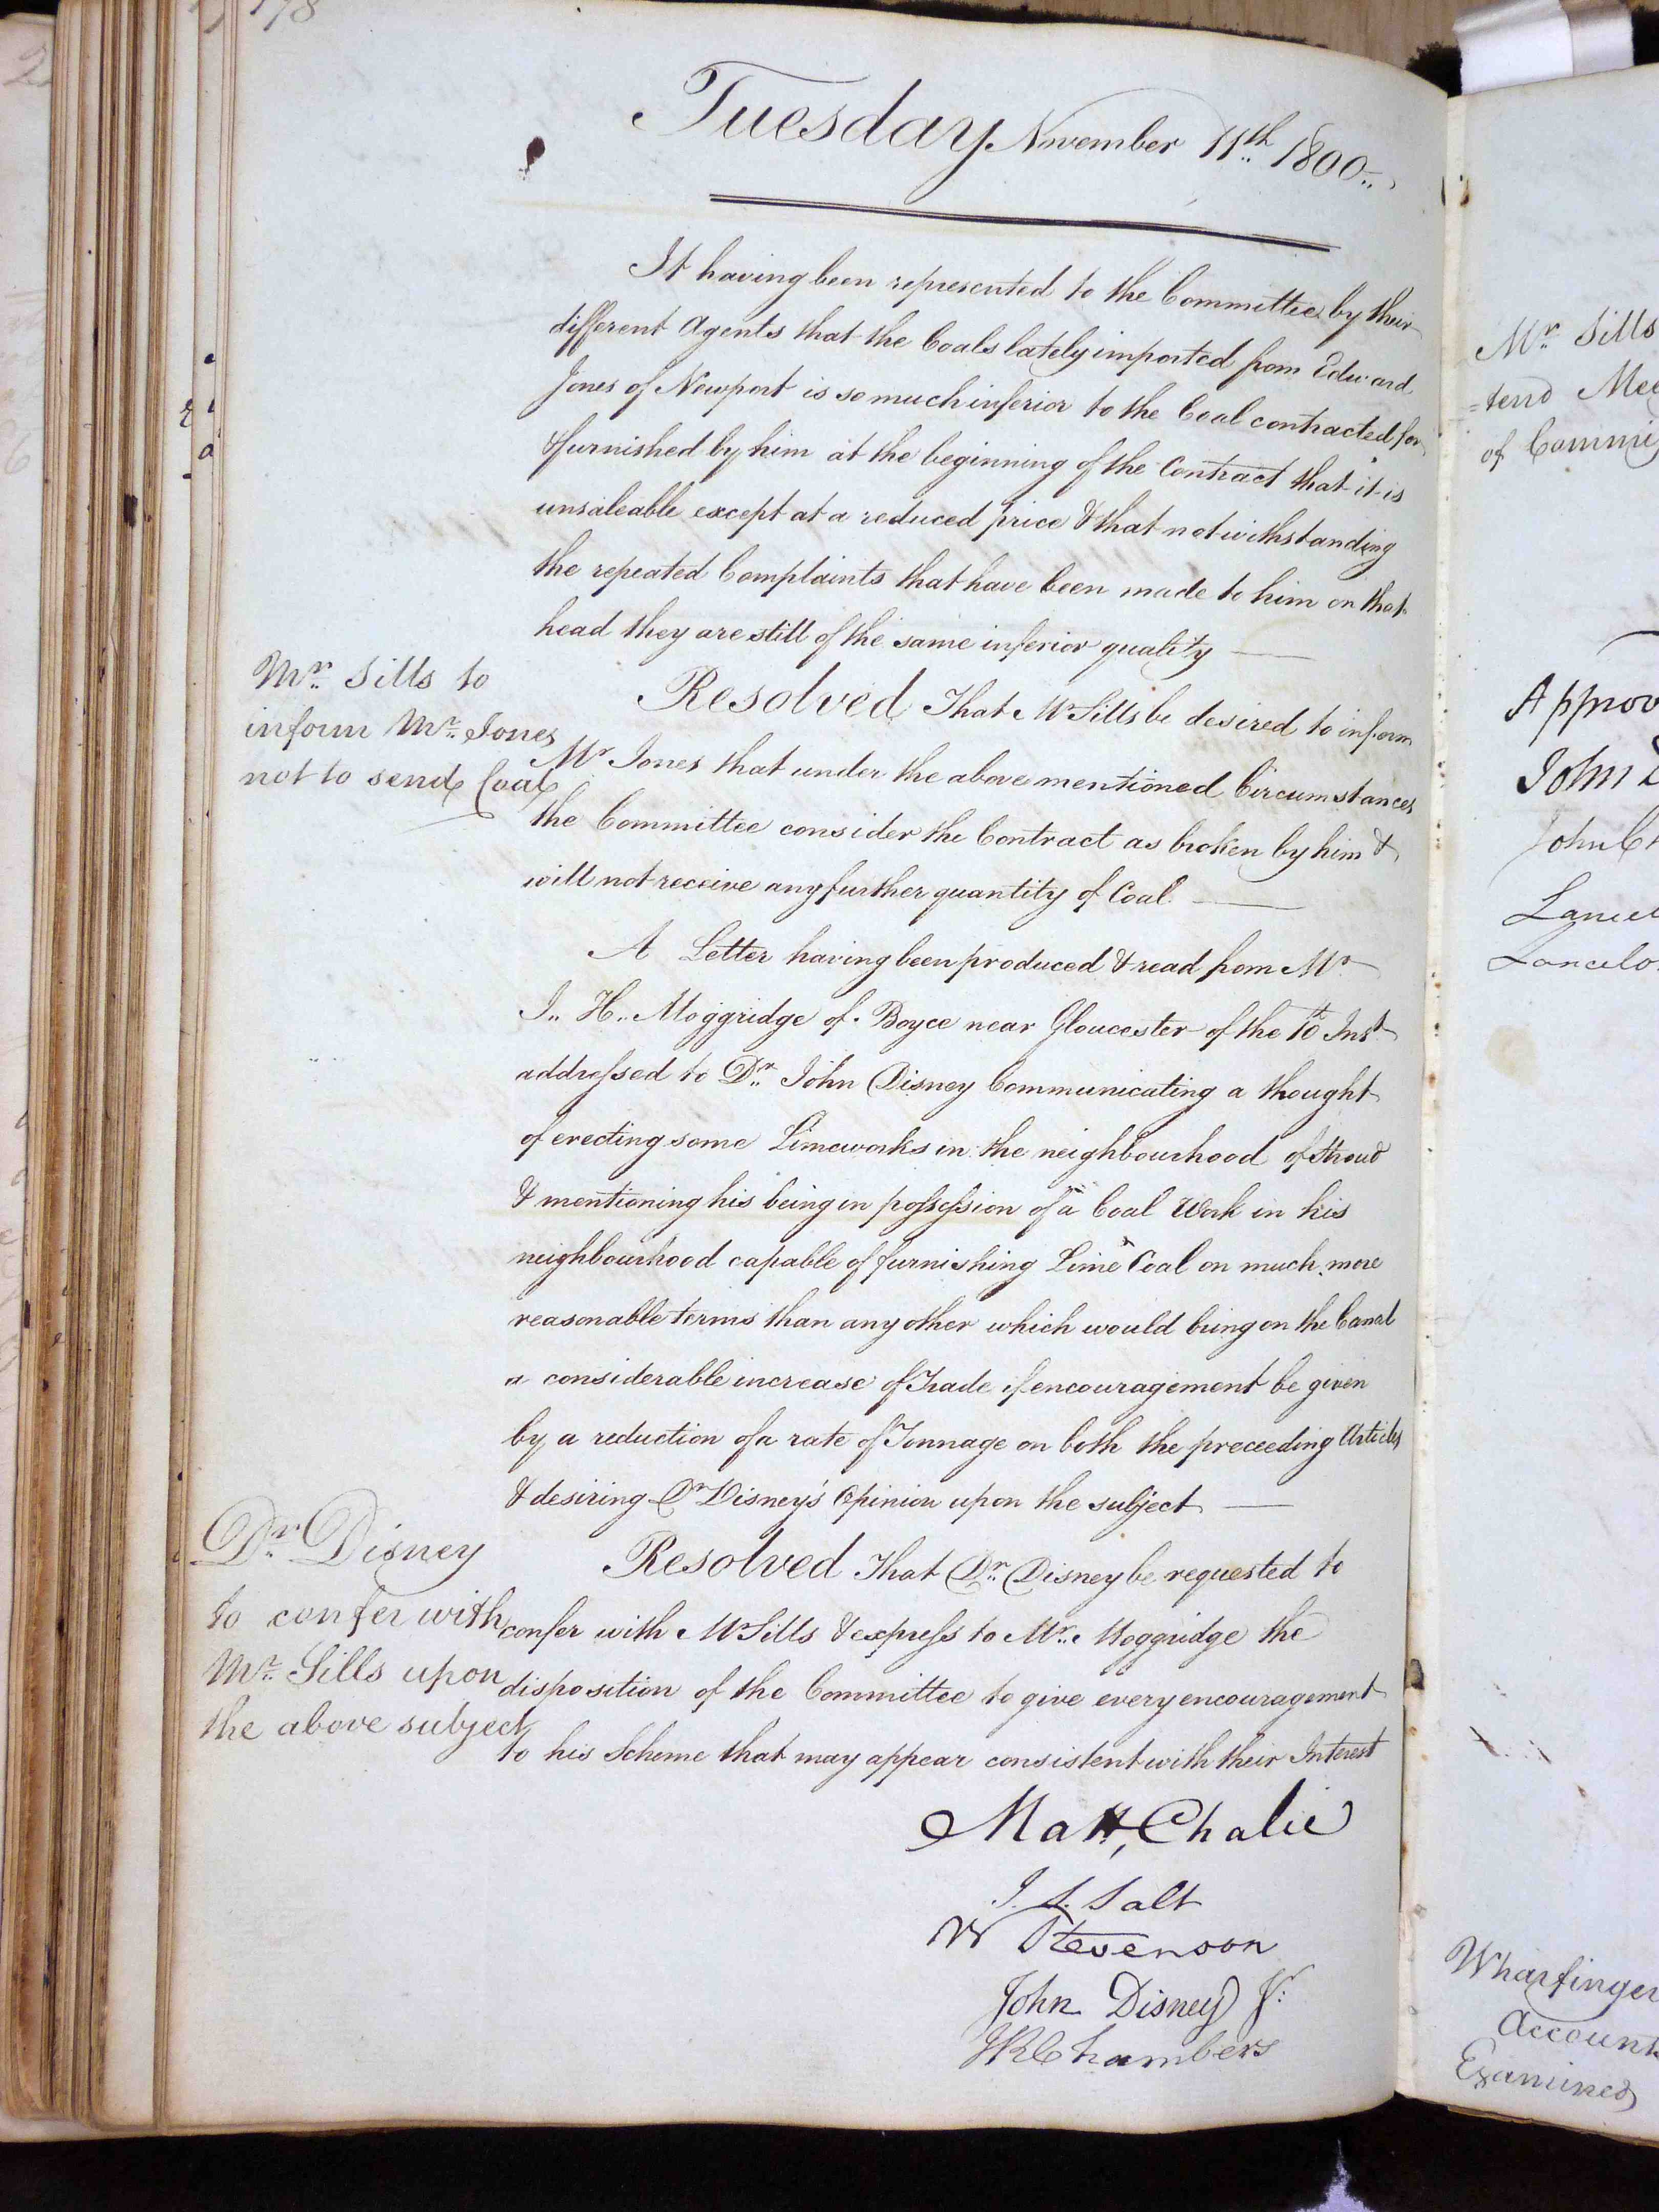 178
Tuesday November 11th 1800
It having been represented to the Committee by their
different Agents that the Coals lately imported from Edward
Jones of Newport is so much inferior to the Coal contracted for
& furnished by him at the beginning of the Contract that it is
unsaleable except at a reduced price & that notwithstanding
the repeated Complaints that have been made to him on that
head they are still of the same inferior quality —
Mr. Sills to
inform Mr. Jones
not to send Coal
Resolved That Mr Sills be desired to inform
Mr Jones that under the above mentioned Circumstances
the Committee consider the Contract as broken by him &
will not receive any further quantity of Coal —
A Letter having been produced & read from Mr
J.. H.. Moggridge of Boyce near Gloucester of the 10th Inst
addressed to Dr. John Disney Communicating a thought
of erecting some Limeworks in the neighbourhood of Stroud
& mentioning his being in possession of a Coal Work in his
neighbourhood capable of furnishing Lime Coal on much more
reasonable terms than any other which would bring on the Canal
a considerable increase of Trade if encouragement be given
by a reduction of a rate of Tonnage on both the preceeding Articles
& desiring Dr Disney's Opinion upon the subject —
Dr. Disney
to confer with
Mr. Sills upon
the above subject
Resolved That Dr. Disney be requested to
confer with Mr Sills & express to Mr. Moggridge the
disposition of the Committee to give every encouragement
to his Scheme that may appear consistent with their Interest
Matt, Chalie
J. S. Salt
W Stevenson
John Disney Jr:
JRChambers
Mr. Sills
=tend Mee
of Commi
Approv
John D
John Ch
Lancel
Lancelo
Wharfinger
Account
Examined